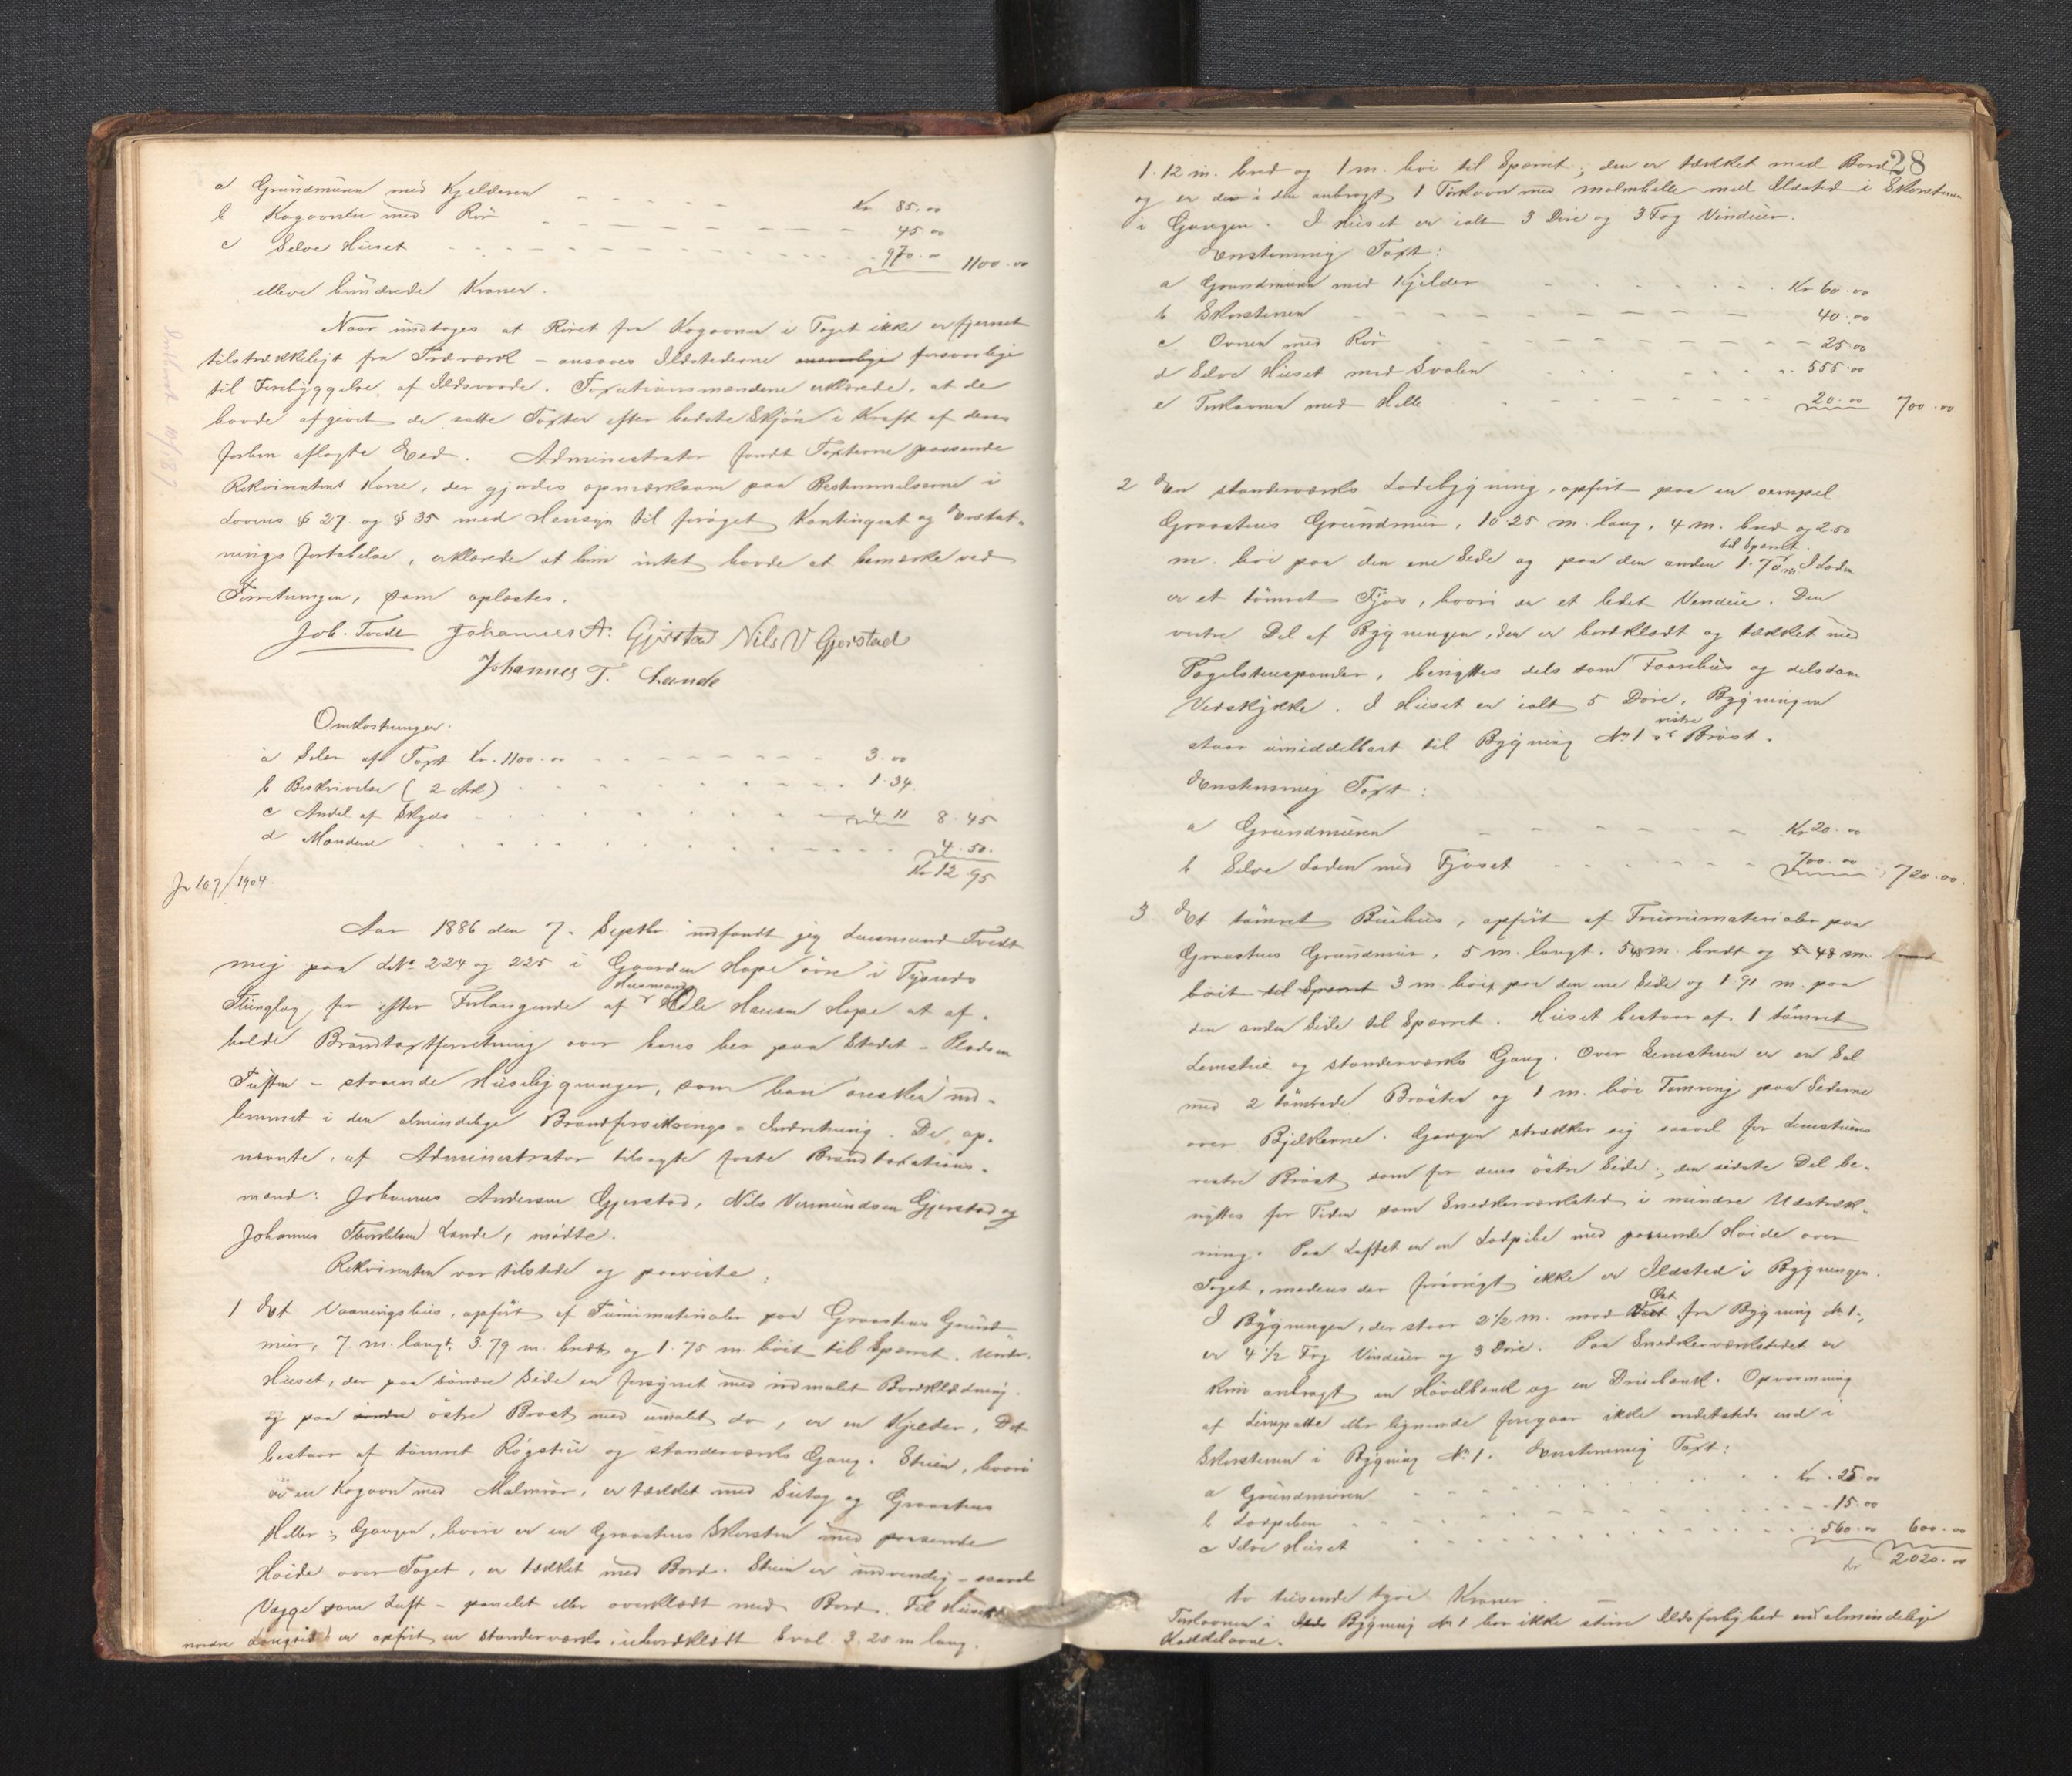 a Grundmuren med Kjelderen - - - - - Kr 85.00
b Kogovnen med Rør - - - - - 45.00
c Selve Huset - - - - - 970.00 1100.00
elleve hundrede Kroner.
Naar undtages at Røret fra Kogovnen i Taget ikke er fjernet
tilstrækkeligt fra Træværk - ansaaes Ildstederne ansvarlige forsvarlige
til Forebyggelse af Ildsvaade. Taxationsmændene erklærede, at de
havde afgivet de satte Taxter efter bedste Skjøn i Kraft af deres
forhen aflagte Eed. Administrator fandt Taxterne passende
Rekvirentens Kone, der gjordes opmærksom paa Bestemmelserne i
Lovens § 27. og § 35 med Hensyn til forøget Kontingent og Erstat-
nings Fortabelse, erklærede at hun intet havde at bemærke ved
Forretningen, som oplæstes.
Joh. Tvedt Johannes A. Gjerstad Nils V Gjerstad
Johannes T. Lande
Omkostninger:
a Selve af Taxt Kr. 1100.00 - - - - - 3.00
b Beskrivelse (2 Ark) - - - - - 1.34.
c Andel af Skyds - - - - - 4.11 8.45
d Mændene - - - - - 4.50.
Kr 12.95
Jr 167/1904.
Aar 1886 den 7. Septbr indfandt jeg Lensmand Tvedt
mig paa L.№ 224 og 225 i Gaarden Hope øvre i Tysnes
Husmand
Thinglag for efter Forlangende af Ole Hansen Hope at af-
holde Brandtaxtforretning over hans her paa Stedet - Pladsen
Tuften - staaende Husebygninger, som han ønsker ind-
lemmet i den almindelige Brandforsikrings-Indretning. De op-
nævnte, af Administrator tilsagte faste Brandtaxations-
mænd: Johannes Andersen Gjerstad, Nils Vermundsen Gjerstad og
Johannes Thorkildsen Lande, mødte.
Rekvirenten var tilstede og paaviste:
1 Et Vaaningshus, opført af Furumaterialer paa Graastens Grund
mur, 7. m. langt, 3.79 m. bredt og 1.75 m. høit til Sperret. Under
Huset, der paa søndre Side er forsynet med indmalet Bordklædning
og paa søndre østre Brøst med umalet do, er en Kjelder. Det
bestaar af tømret Røgstue og standerværks Gang. Stuen, hvori
er en Kogovn med Malmrør, er tækket med Sutag og Graastens
Heller; Gangen, hvori er en Graastens Skorsten med passende
Høide over Taget, er tækket med Bord. Stuen er indvendig - saavel
Vægge som Loft - panelet eller overklædt med Bord. Til Husets
nordre Langside er opført en standerværks, ubordklædt Sval. 3.20 m lang.
28
1.12 m. bred og 1 m. høi til Sperret; den er tækket med Bord
og er der i den anbragt 1 Tørkovn med malmhelle med Ildsted i Skorstenen
i Gangen. I Huset er ialt 3 Døre og 3 Fag Vinduer.
Enstemmig Taxt:
a Grundmuren med Kjelder - - - - - Kr 60.00
b Skorstenen - - - - - 40.00
c Ovnen med Rør - - - - - 25.00
d Selve Huset med Svalen - - - - - 555.00
e Tørkovnen med Helle - - - - - 20.00 700.00
2 En standerværks Ladebygning, opført paa en simpel
Graastens Grundmur, 10.25 m. lang, 4 m. bred og 2.50
til Sperret
m. høi paa den ene Side og paa den anden 1.70 m. I Laden
er et tømret Fjøs, hvori er et lidet Vindue. Den
vestre Del af Bygningen, der er bordklædt og tækket med
Tagelstenspander, benyttes dels som Faarehus og dels som
Vedskykke. I Huset er ialt 5 Døre. Bygningen
vestre
staar umiddelbart til Bygning № 1 s Brøst.
Enstemmig Taxt:
a Grundmuren - - - - - Kr 20.00
b Selve Laden med Fjøset - - - - - 700.00 720.00.
3 Et tømret Buehus, opført af Furumaterialer paa
Graastens Grundmur, 5 m. langt, 5.48 m. bredt og 5.48 m.
høit til Sperret 3 m. høit paa den ene Side og 1.91 m. paa
den anden Side til Sperret. Huset bestaar af 1 tømret
Lemstue og standerværks Gang. Over Lemstuen er en Sal
med 2 tømrede Brøster og 1 m. høi Tømring paa Siderne
over Bjelkerne. Gangen strækker sig saavel for Lemstuens
vestre Brøst som for dens østre Side; den sidste Del be-
nyttes for Tiden som Snedkerværksted i mindre Udstræk-
ning. Paa Loftet er en Ladpibe med passende Høide over
Taget, medens der forøvrigt ikke er Ildsted i Bygningen.
Øst
I Bygningen, der staar 2½ m. mod Vest fra Bygning № 1,
er 4½ Fag Vinduer og 3 Døre. Paa Snedkerværkstedet er
kun anbragt en Høvelbænk og en Dreiebænk. Opvarmning
af Limpotte eller lignende foregaar ikke andetsteds end i
Skorstenen i Bygning № 1. Enstemmig Taxt:
a Grundmuren - - - - - Kr. 25.00
b Ladpiben - - - - - 15.00
c Selve Huset - - - - - 560.00 600.00
Kr 2020.00
to tusende tyve Kroner. -
Tørkovnen i Bygning № 1 har ikke større Ildsfarlighed end almindelige
Kakkelovne.